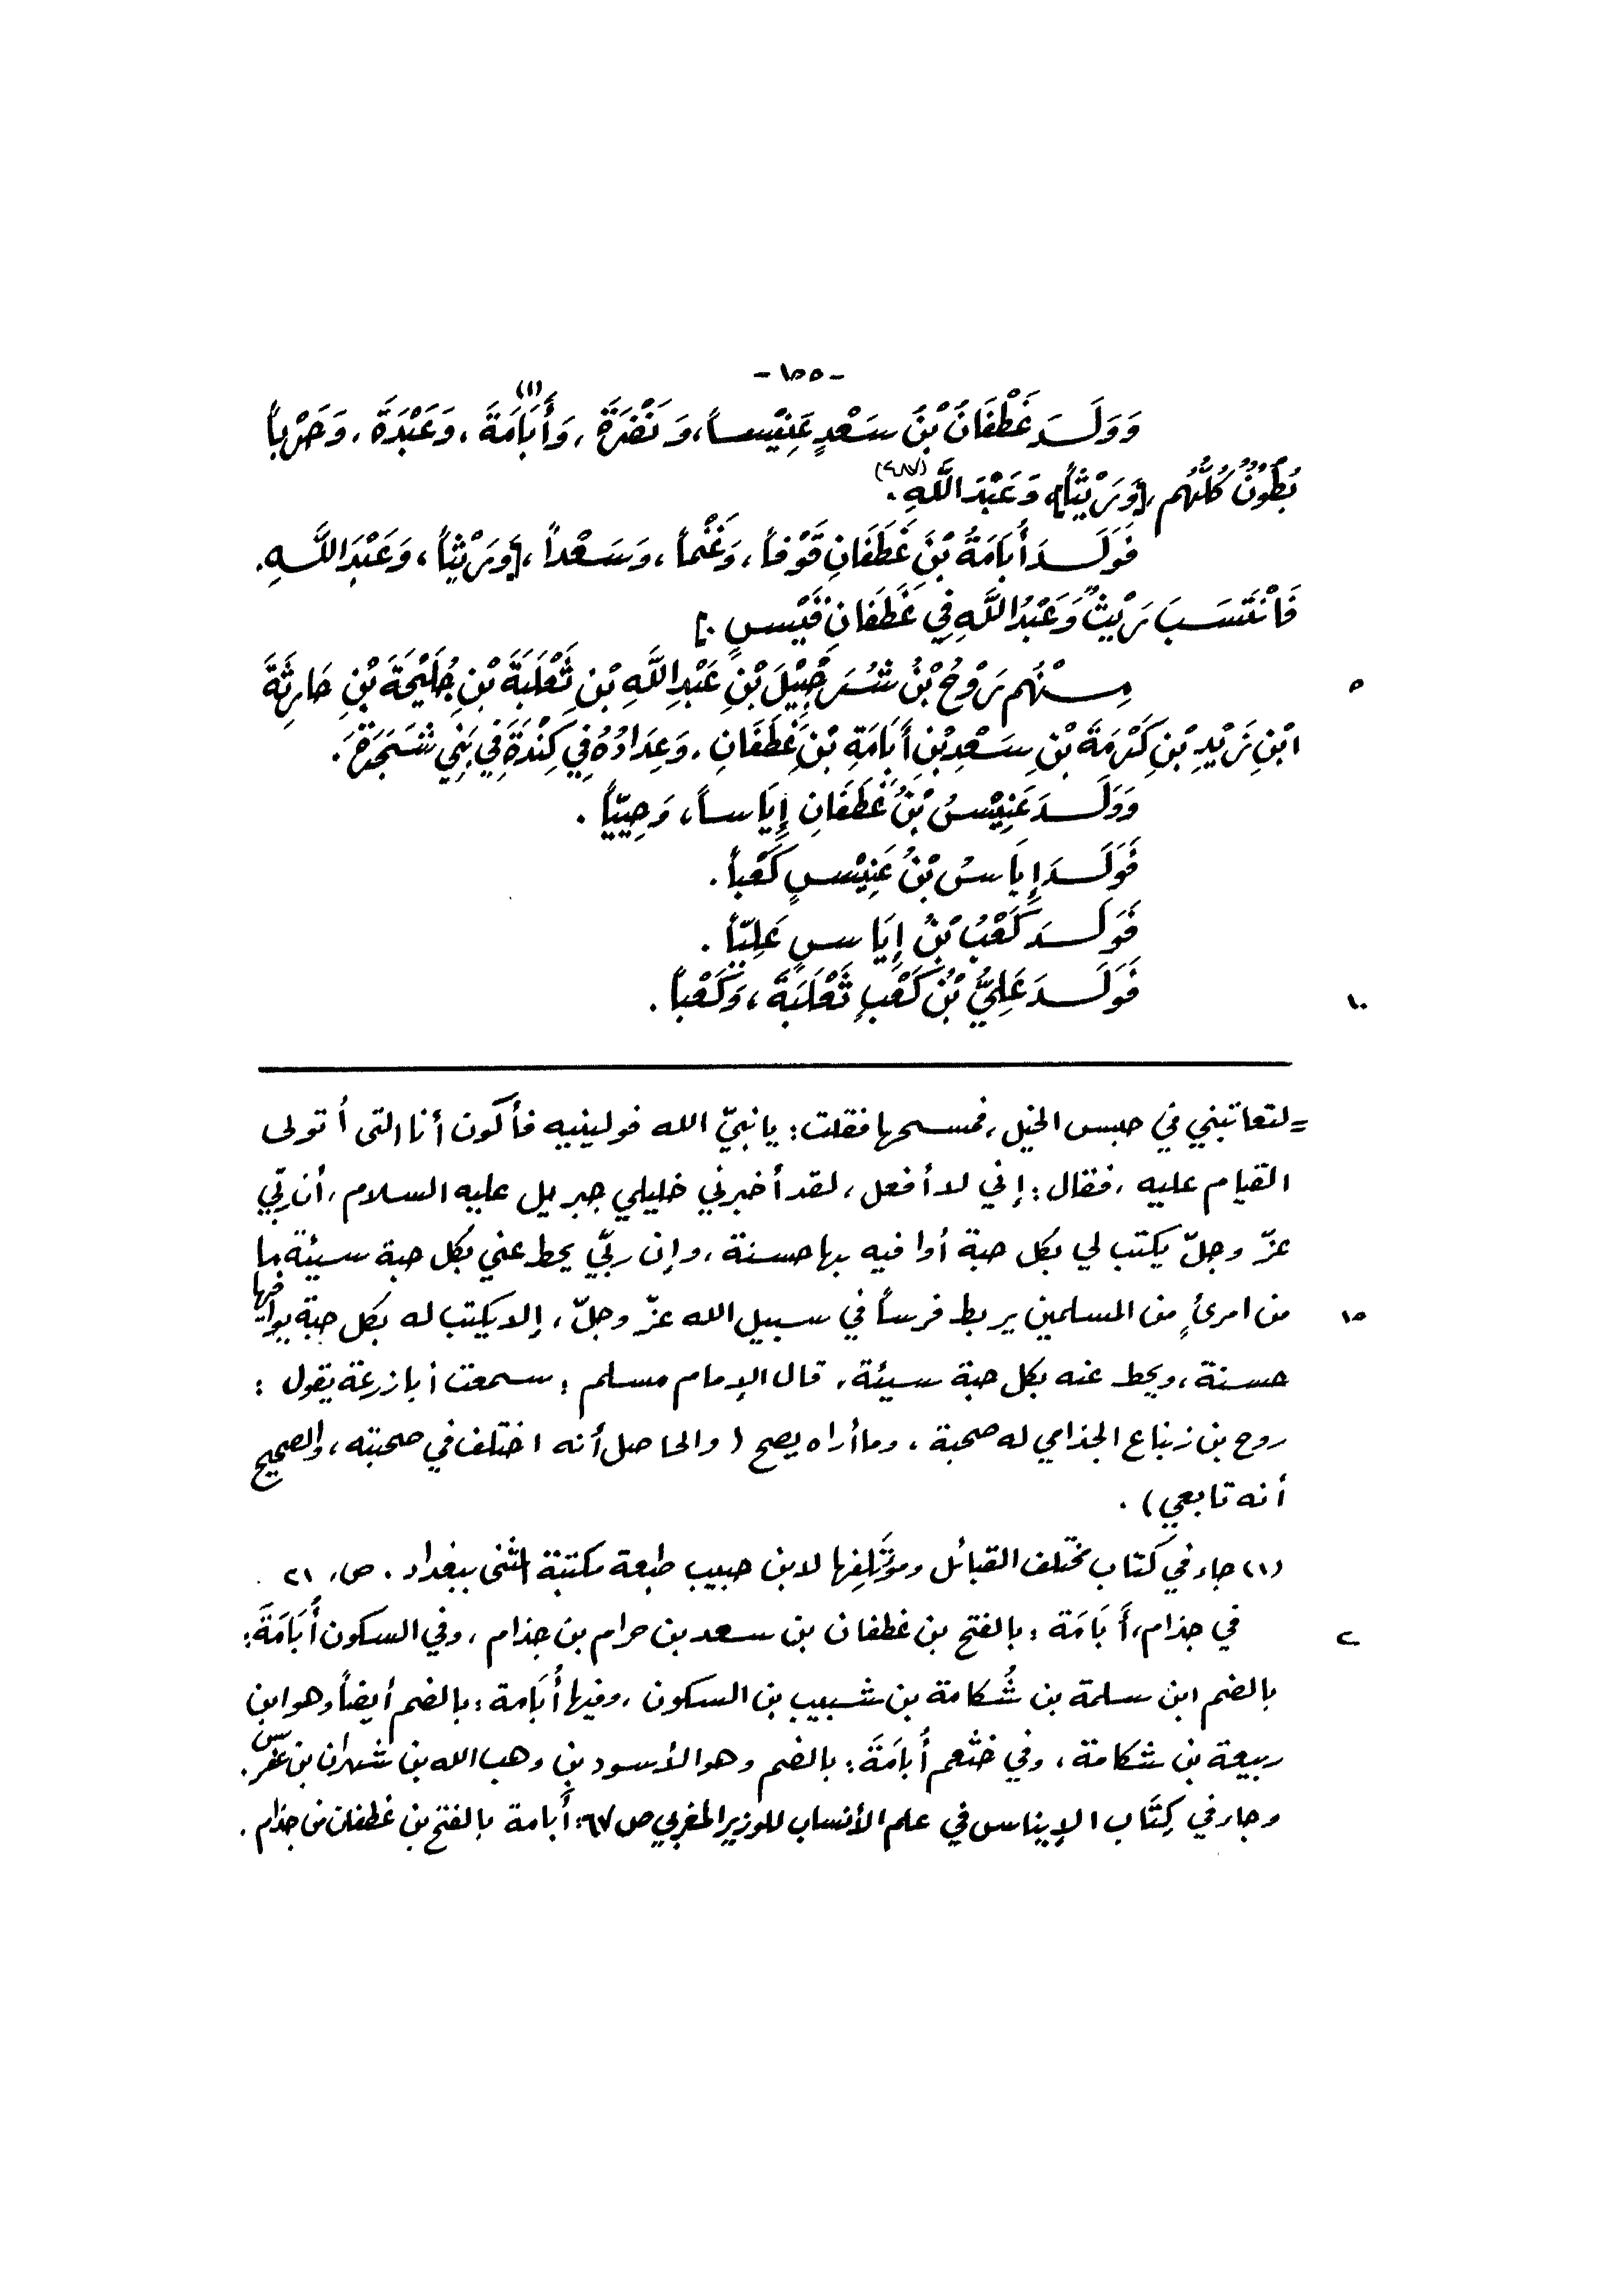 - ١٥٥ -
وَوَلَدَ غَطَفَانُ بْنُ سَعْدٍ عَنِيْساً، وَنَضْرَةَ، وَأَبَامَةَ(١)، وَعَبْدَةَ، وَحَرْباً
بُطُونٌ كُلُّهُم، [وَرَيْثاً] وَعَبْدَ اللَّهِ.(٤٨٧)
فَوَلَدَ أَبَامَةُ بْنُ غَطَفَانِ قَوْفاً، وَغَنْماً، وَسَعْداً، [وَرَيْثاً، وَعَبْدَ اللَّهِ.
فَانْتَسَبَ رَيْثٌ وَعَبْدُ اللَّهِ فِي غَطَفَانِ قَيْسٍ.]
٥ مِنْهُم رَوْحُ بْنُ شُرَحْبِيْلَ بْنِ عَبْدِ اللَّهِ بْنِ ثَعْلَبَةَ بْنِ جُلَيْحَةَ بْنِ حَارِثَةَ
ابْنِ زَيْدِ بْنِ كَرْمَةَ بْنِ سَعْدِ بْنِ أَبَامَةَ بْنِ غَطَفَانِ. وَعِدَادُهُ فِي كِنْدَةَ فِي بَنِي شَجَرَةَ.
وَوَلَدَ عَنِيْسُ بْنُ غَطَفَانِ إِيَاساً، وَحِيَيّاً.
فَوَلَدَ إِيَاسُ بْنُ عَنِيْسٍ كَعْباً.
فَوَلَدَ كَعْبُ بْنُ إِيَاسٍ عَلِيّاً.
١٠ فَوَلَدَ عَلِيُّ بْنُ كَعْبٍ ثَعْلَبَةَ، وَكَعْباً.
= لتعاتبني في حبس الخيل، فمسحها فقلت: يا نبيّ الله فولينيه فأكون أنا التى أتولى
القيام عليه، فقال: إني لا أفعل، لقد أخبرني خليلي جبريل عليه السلام، أن ربّي
عزّ وجلّ يكتب لي بكل حبة أوافيه بها حسنة، وإن ربّي يحط عني بكل حبة سيئة، ما
١٥ من امرئٍ من المسلمين يربط فرساً في سبيل الله عزّ وجلّ، إلا يكتب له بكل حبّة يوافيها
حسنة، ويحط عنه بكل حبة سيئة. قال الإمام مسلم: سمعت أبا زرعة يقول:
روح بن زنباع الجذامي له صحبة، وما أراه يصح (والحاصل أنه اختلف في صحبته، والصحيح
أنه تابعي).
(١) جاء في كتاب مختلف القبائل ومؤتَلِفها لابن حبيب طبعة مكتبة المثنى ببغداد. ص، ٢١
٢ في جذام، أَبَامَة: بالفتح بن غطفان بن سعد بن حرام بن جذام، وفي السكون أُبَامَةَ:
بالضم ابن سلمة بن شُكامة بن شبيب بن السكون، وفيها أُبَامة: بالضم أيضاً وهو ابن
ربيعة بن شكامة، وفي خثعم أُبامَةَ: بالضم وهو الأسود بن وهب الله بن شهران بن عفرس.
وجاء في كِتَاب الإيناس في علم الأنساب للوزير المغربي ص ٦٧: أَبامة بالفتح بن غطفان من جذام.